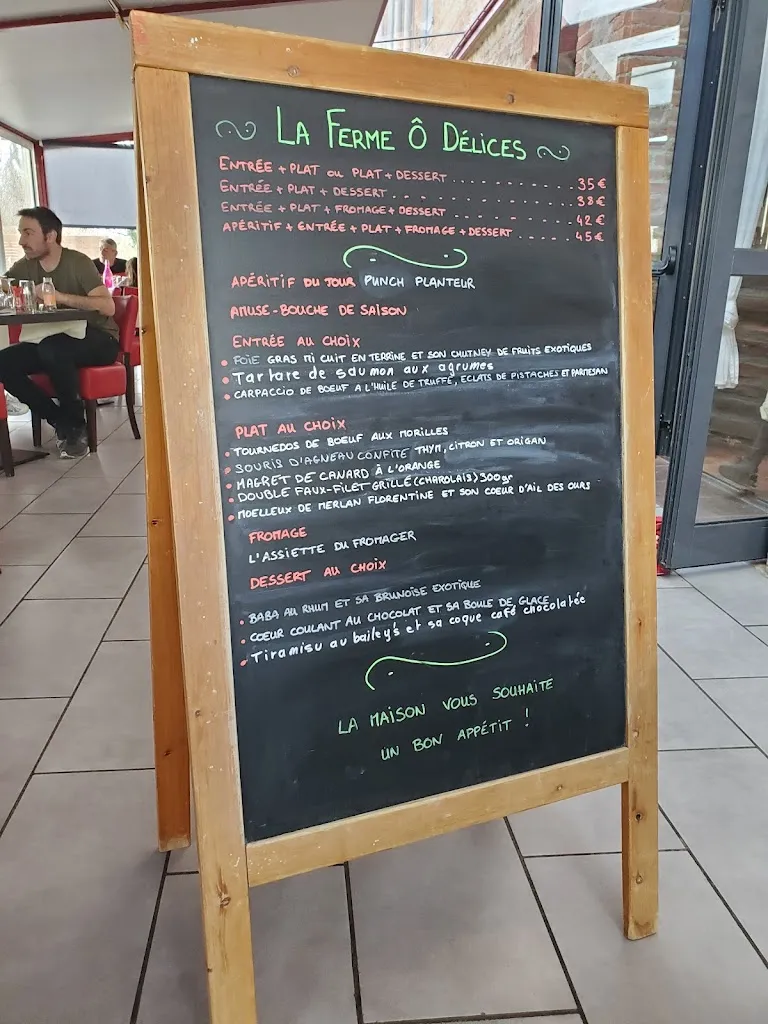 LA FERME Ô DÉLICES
ENTRÉE + PLAT ou PLAT + DESSERT . . . . . . . . . . . 35€
ENTRÉE + PLAT + DESSERT . . . . . . . . . . . . . . 38€
ENTRÉE + PLAT + FROMAGE + DESSERT . . . . . . . . . . . 42€
APÉRITIF + ENTRÉE + PLAT + FROMAGE + DESSERT . . . . . . 45€
APÉRITIF DU JOUR PUNCH PLANTEUR
AMUSE-BOUCHE DE SAISON
ENTRÉE AU CHOIX
• FOIE GRAS MI CUIT EN TERRINE ET SON CHUTNEY DE FRUITS EXOTIQUES
• Tartare de saumon aux agrumes
• CARPACCIO DE BOEUF A L'HUILE DE TRUFFE, ECLATS DE PISTACHES ET PARMESAN
PLAT AU CHOIX
• TOURNEDOS DE BOEUF AUX MORILLES
• SOURIS D'AGNEAU CONFITE THYM, CITRON ET ORIGAN
• MAGRET DE CANARD À L'ORANGE
• DOUBLE FAUX-FILET GRILLÉ (CHAROLAIS) 300gr
• MOELLEUX DE MERLAN FLORENTINE ET SON COEUR D'AIL DES OURS
FROMAGE
L'ASSIETTE DU FROMAGER
DESSERT AU CHOIX
• BABA AU RHUM ET SA BRUNOISE EXOTIQUE
• COEUR COULANT AU CHOCOLAT ET SA BOULE DE GLACE
• Tiramisu au bailey's et sa coque café chocolatée
LA MAISON VOUS SOUHAITE
UN BON APPÉTIT !